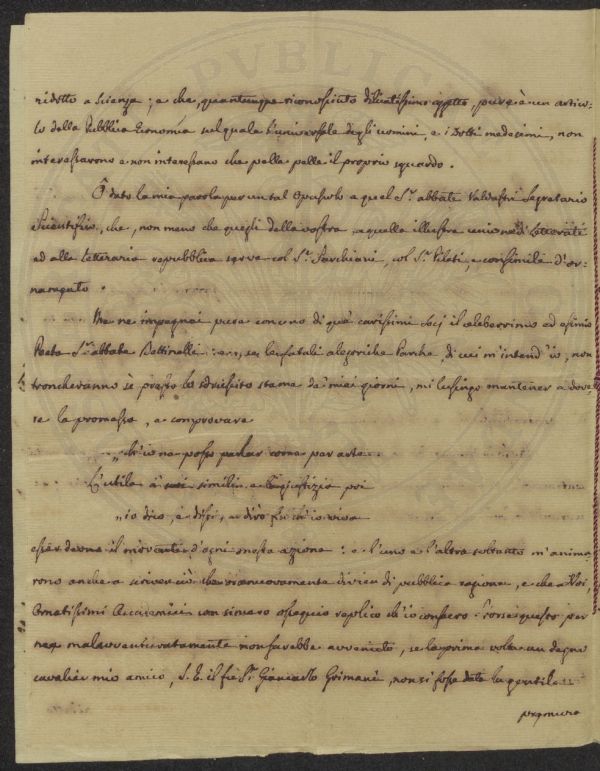 PVBLIC
ridotto a Scienza ; e che, quantunque riconosciuto dilicatissimo oggetto, pure è un artico=
lo della Pubblica Economia sul quale l'universale degli uomini, e i Dotti medesimi, non
interessarono e non interessano che pelle pelle il proprio sguardo .
Ò dato la mia parola per un tal Opuscolo a quel S.r abbate Valdastri Segretario
Scientifico, che, non meno che quegli della vostra, a quella illustre unione di Letterati
ed alla Letteraria repubblica serve col S.r Sarchiani, col S.r Pilati, e consimili d'or=
namento .
Me ne impegnai pure con uno di quà carissimi Socj il celeberrimo ed esimio
Poeta S.r abbate Bettinelli : e, se le fatali alegoriche Parche, di cui m'intend'io, non
troncheranno sì presto lo sdruscito stame de' miei giorni, mi lusingo mantener a dove=
re la promessa, e comprovare
„ ch'io ne posso parlar come per arte
L'utile à simili e la giustizia poi
„ io dico, e dissi, e dirò fin ch'io viva
esser denno il movente d'ogni onesta azione : e l'uno e l'altra soltanto m'anima
rono anche a scriver ciò che or nuovamente divien di pubblica ragione, e che a Voi,
Ornatissimi Accademici con sincero ossequio replico ch'io consacro. Forse questo, per
me malavventuratamente non sarebbe avvenuto, se la prima volta un degno
cavalier mio amico, S. E. il fu S.r Giancarlo Grimani, non si fosse dato la gentile
premura